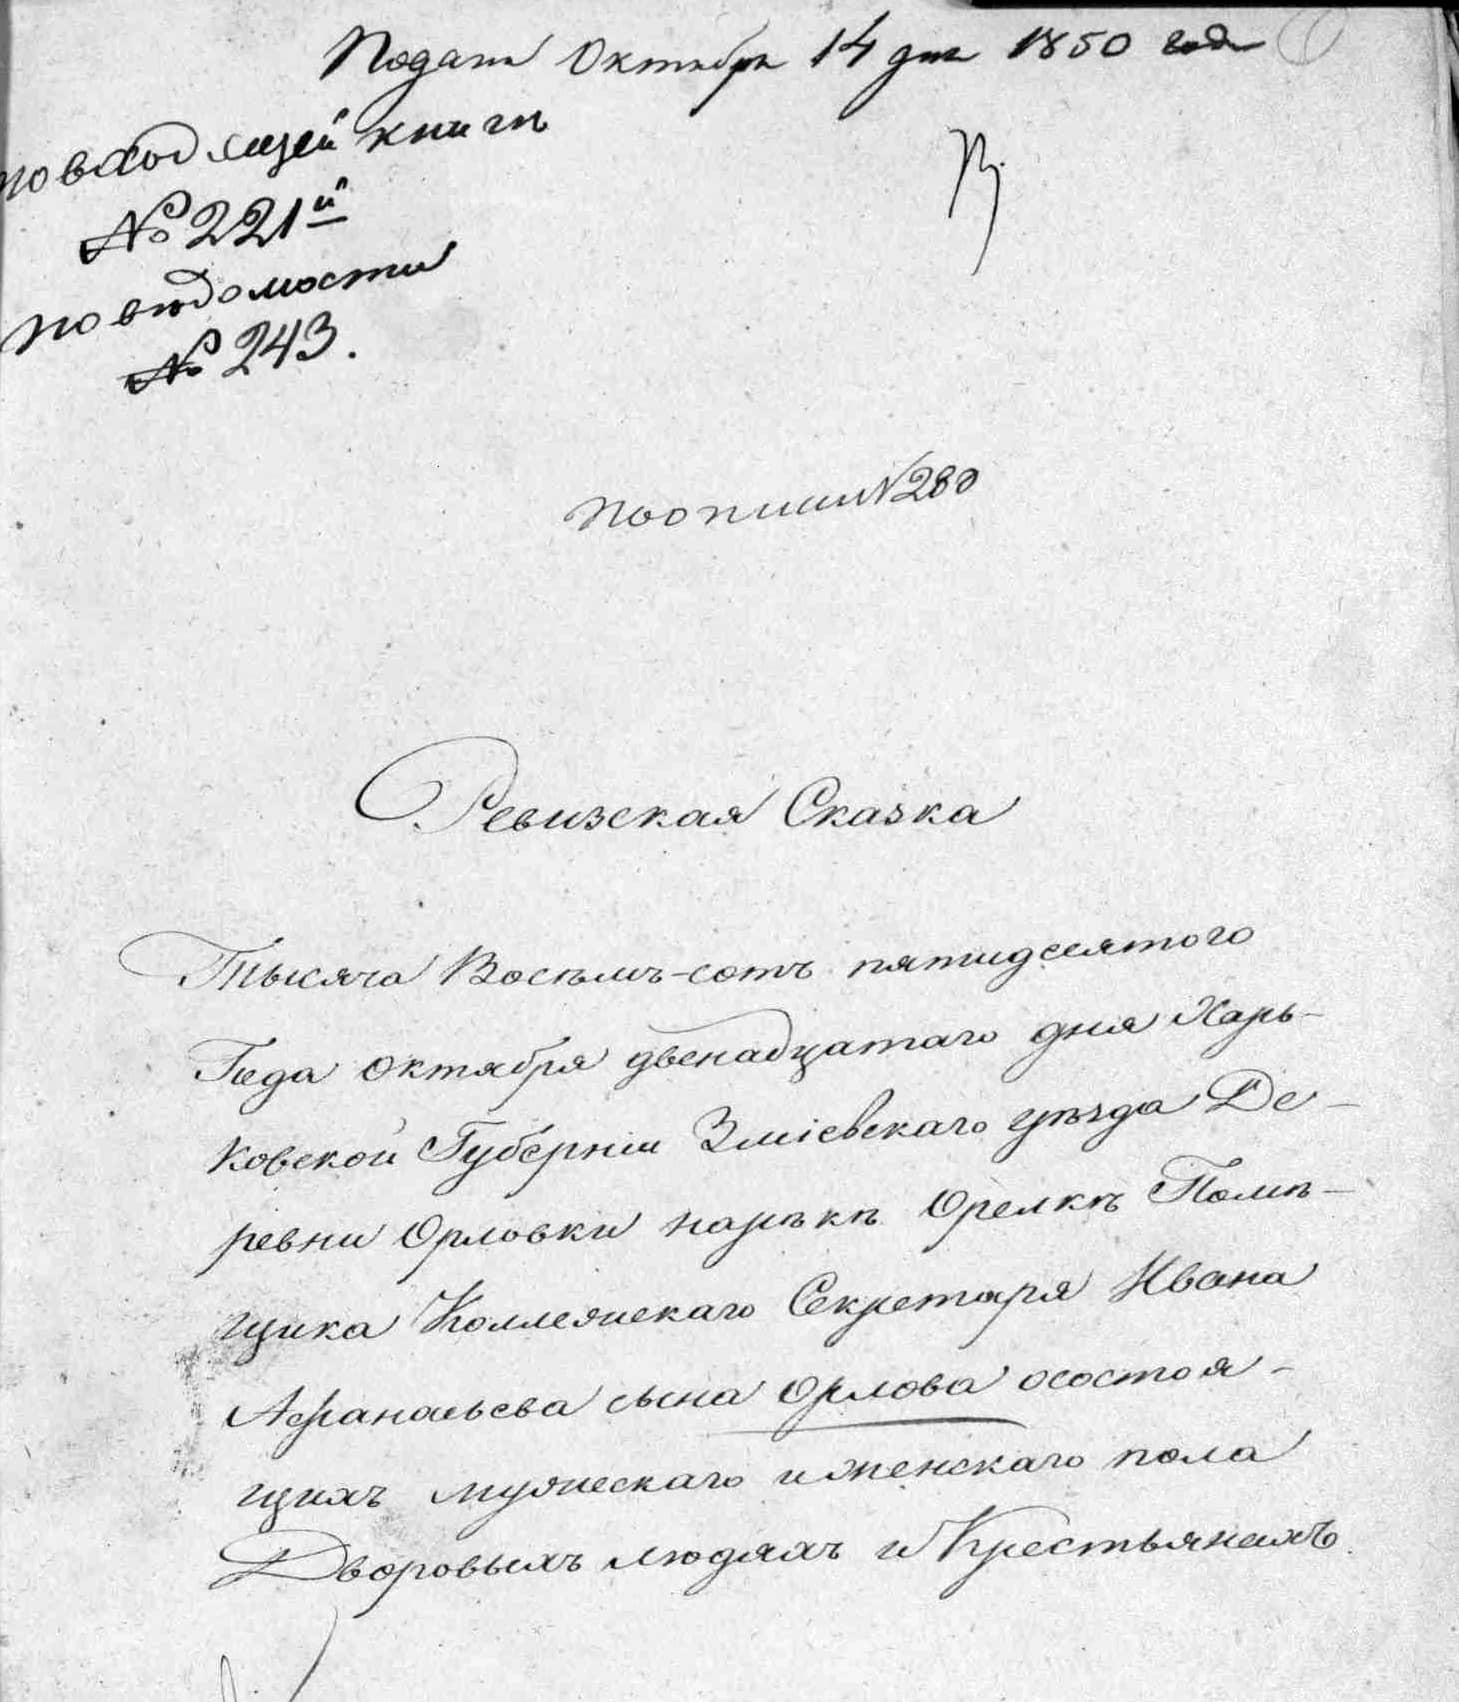 Подана Октября 14 дня 1850 года
по входящей книги
№ 221й
по ведомости
№ 243.
По описи № 280
Ревизская Сказка
Тысяча Восемь-сотъ пятидесятого
Года октября двенадцатаго дня Харь-
ковской Губерніи Зміевскаго уѣзда Де-
ревни Орловки нарѣкѣ Орелкѣ Помѣ-
щика Коллежскаго Секретаря Ивана
Афанасьева сына Орлова осостоя-
щихъ мужескаго иженскаго пола
Дворовыхъ людяхъ и Крестьянахъ